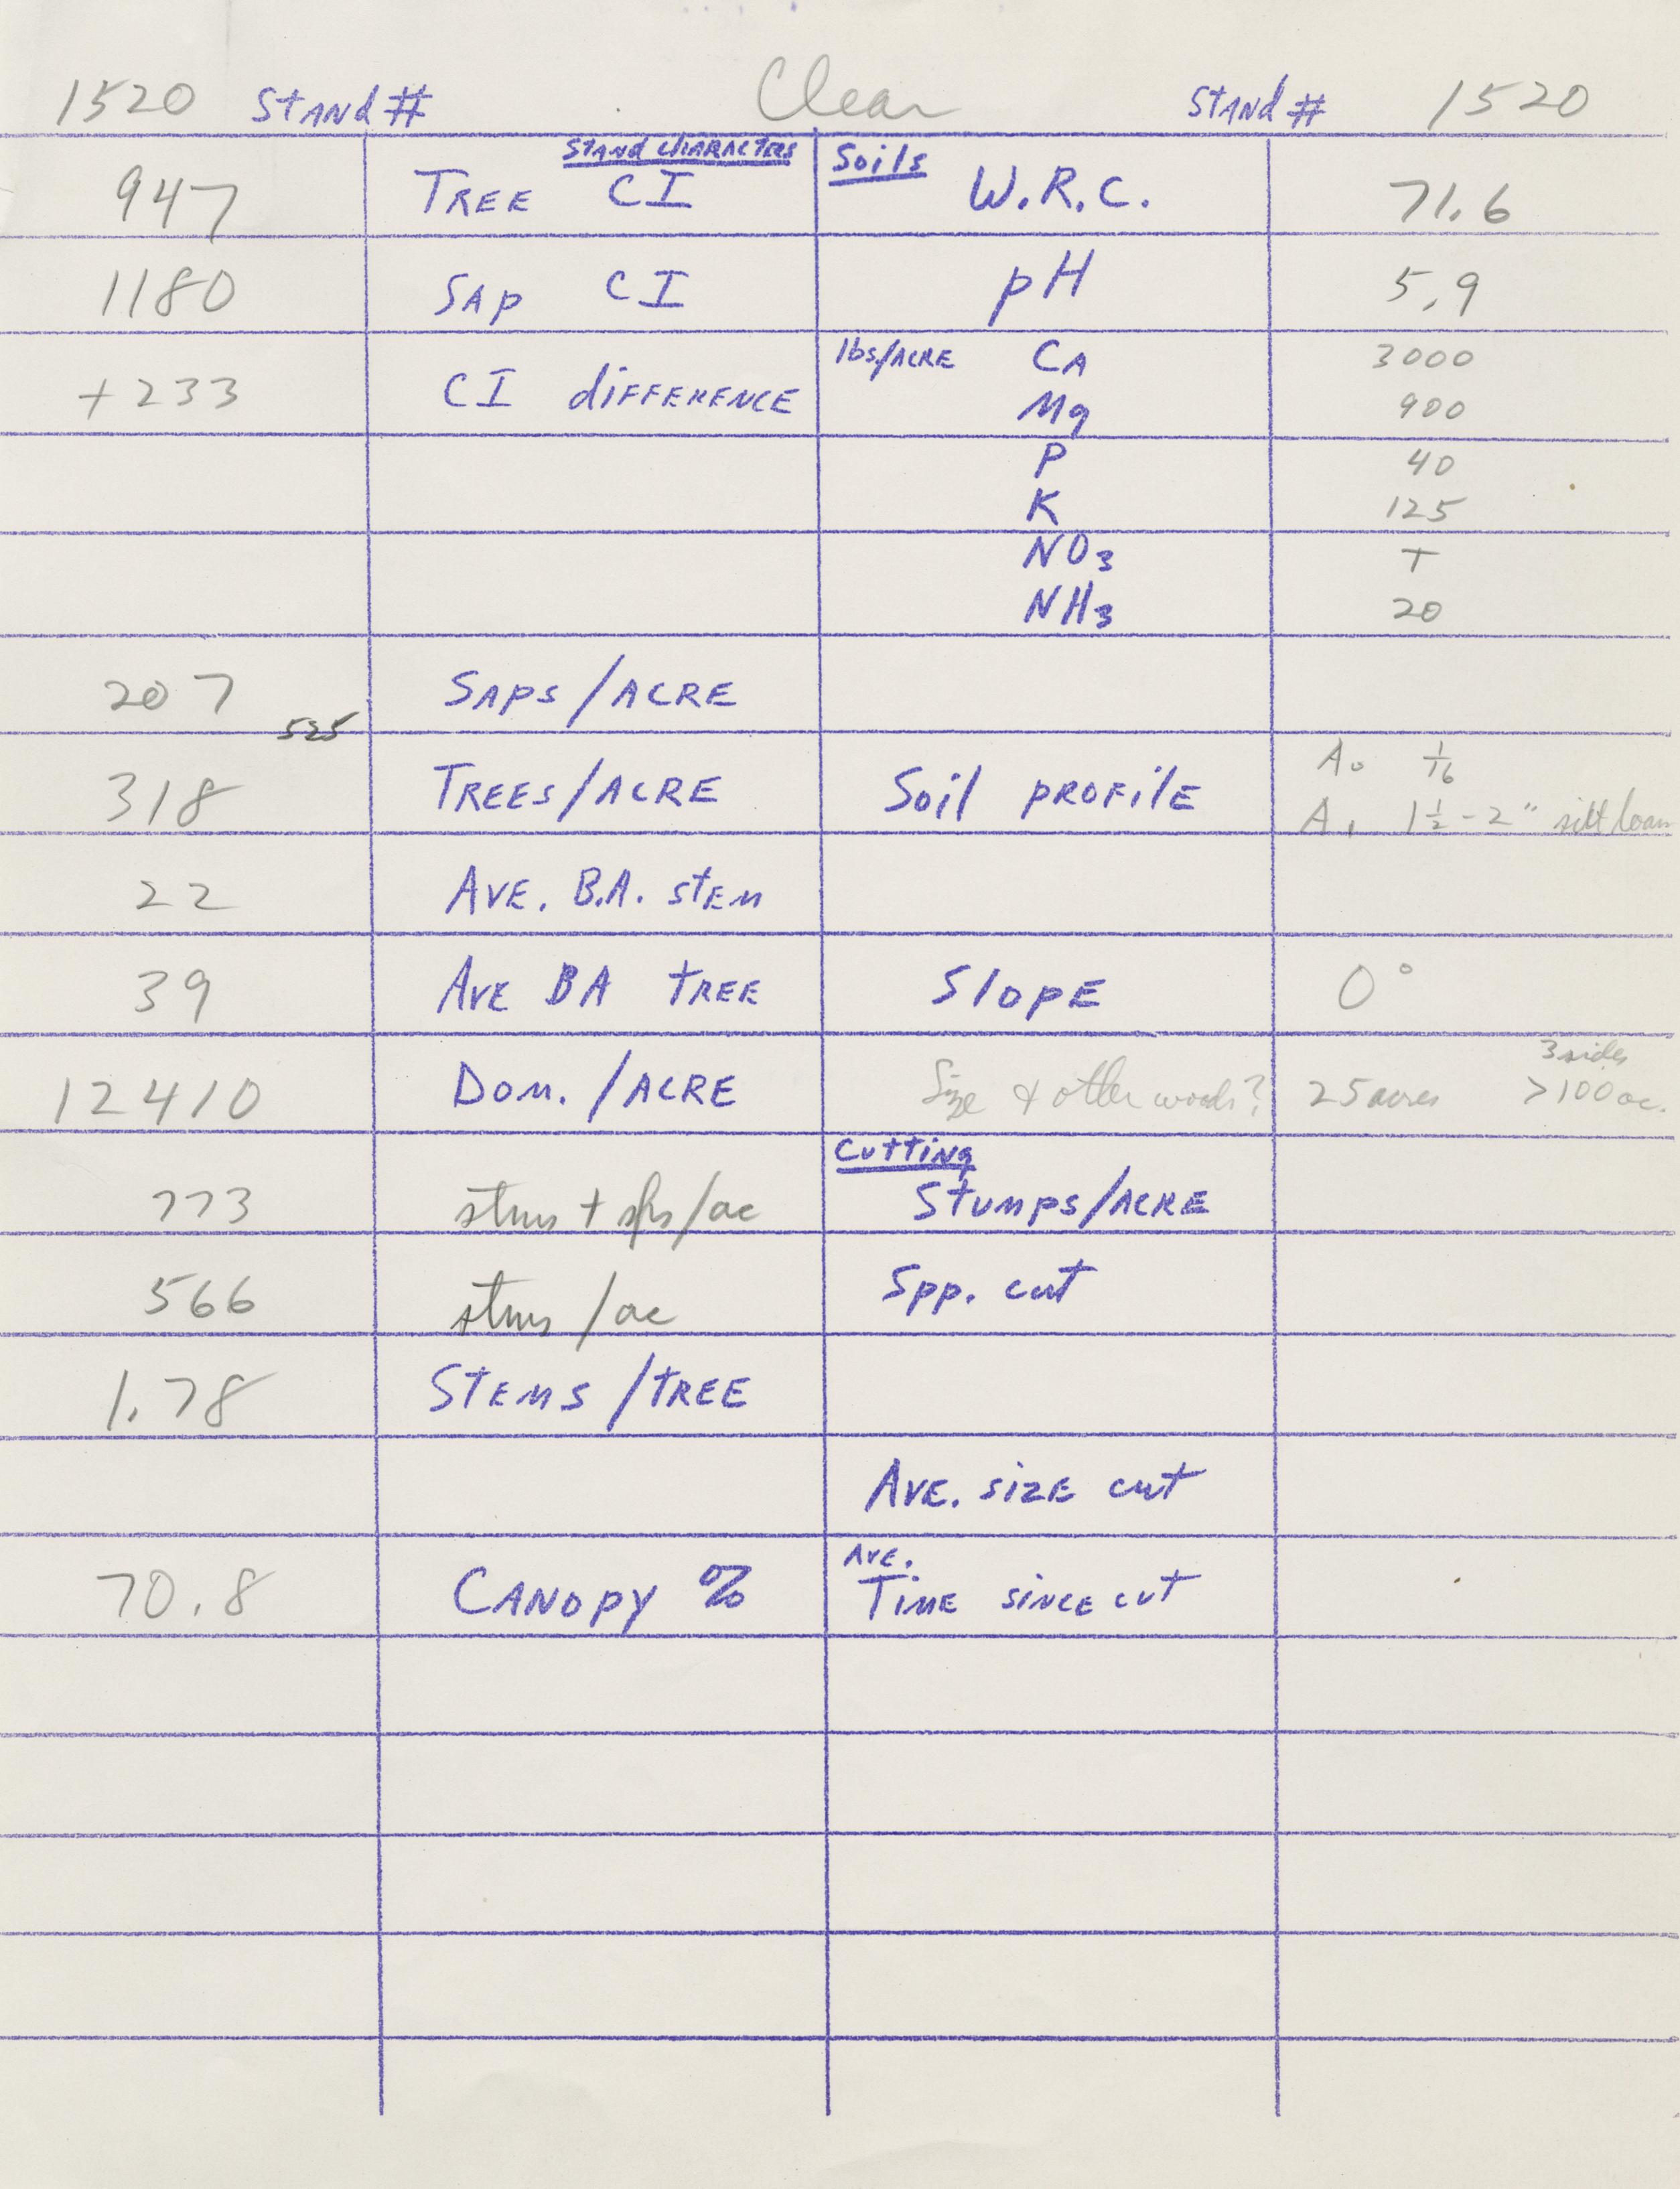 1520 Stand # Clear Stand # 1520
Stand Characters Soils
947 Tree CI W.R.C. 71.6
1180 Sap CI pH 5.9
lbs/Acre Ca 3000
+233 CI difference Mg 900
P 40
K 125
NO3 T
NH3 20
207 Saps/Acre
525
318 Trees/Acre Soil profile A0 1/16
A1 1 1/2 - 2" silt loam
22 Ave. B.A. stem
39 Ave BA tree Slope 0°
3 sides
12410 Dom./Acre Size & other woods? 25 acres >100 ac.
Cutting
773 stms + sps/ac Stumps/Acre
566 stms/ac Spp. cut
1.78 Stems/tree
Ave. size cut
Ave.
70.8 Canopy % Time since cut